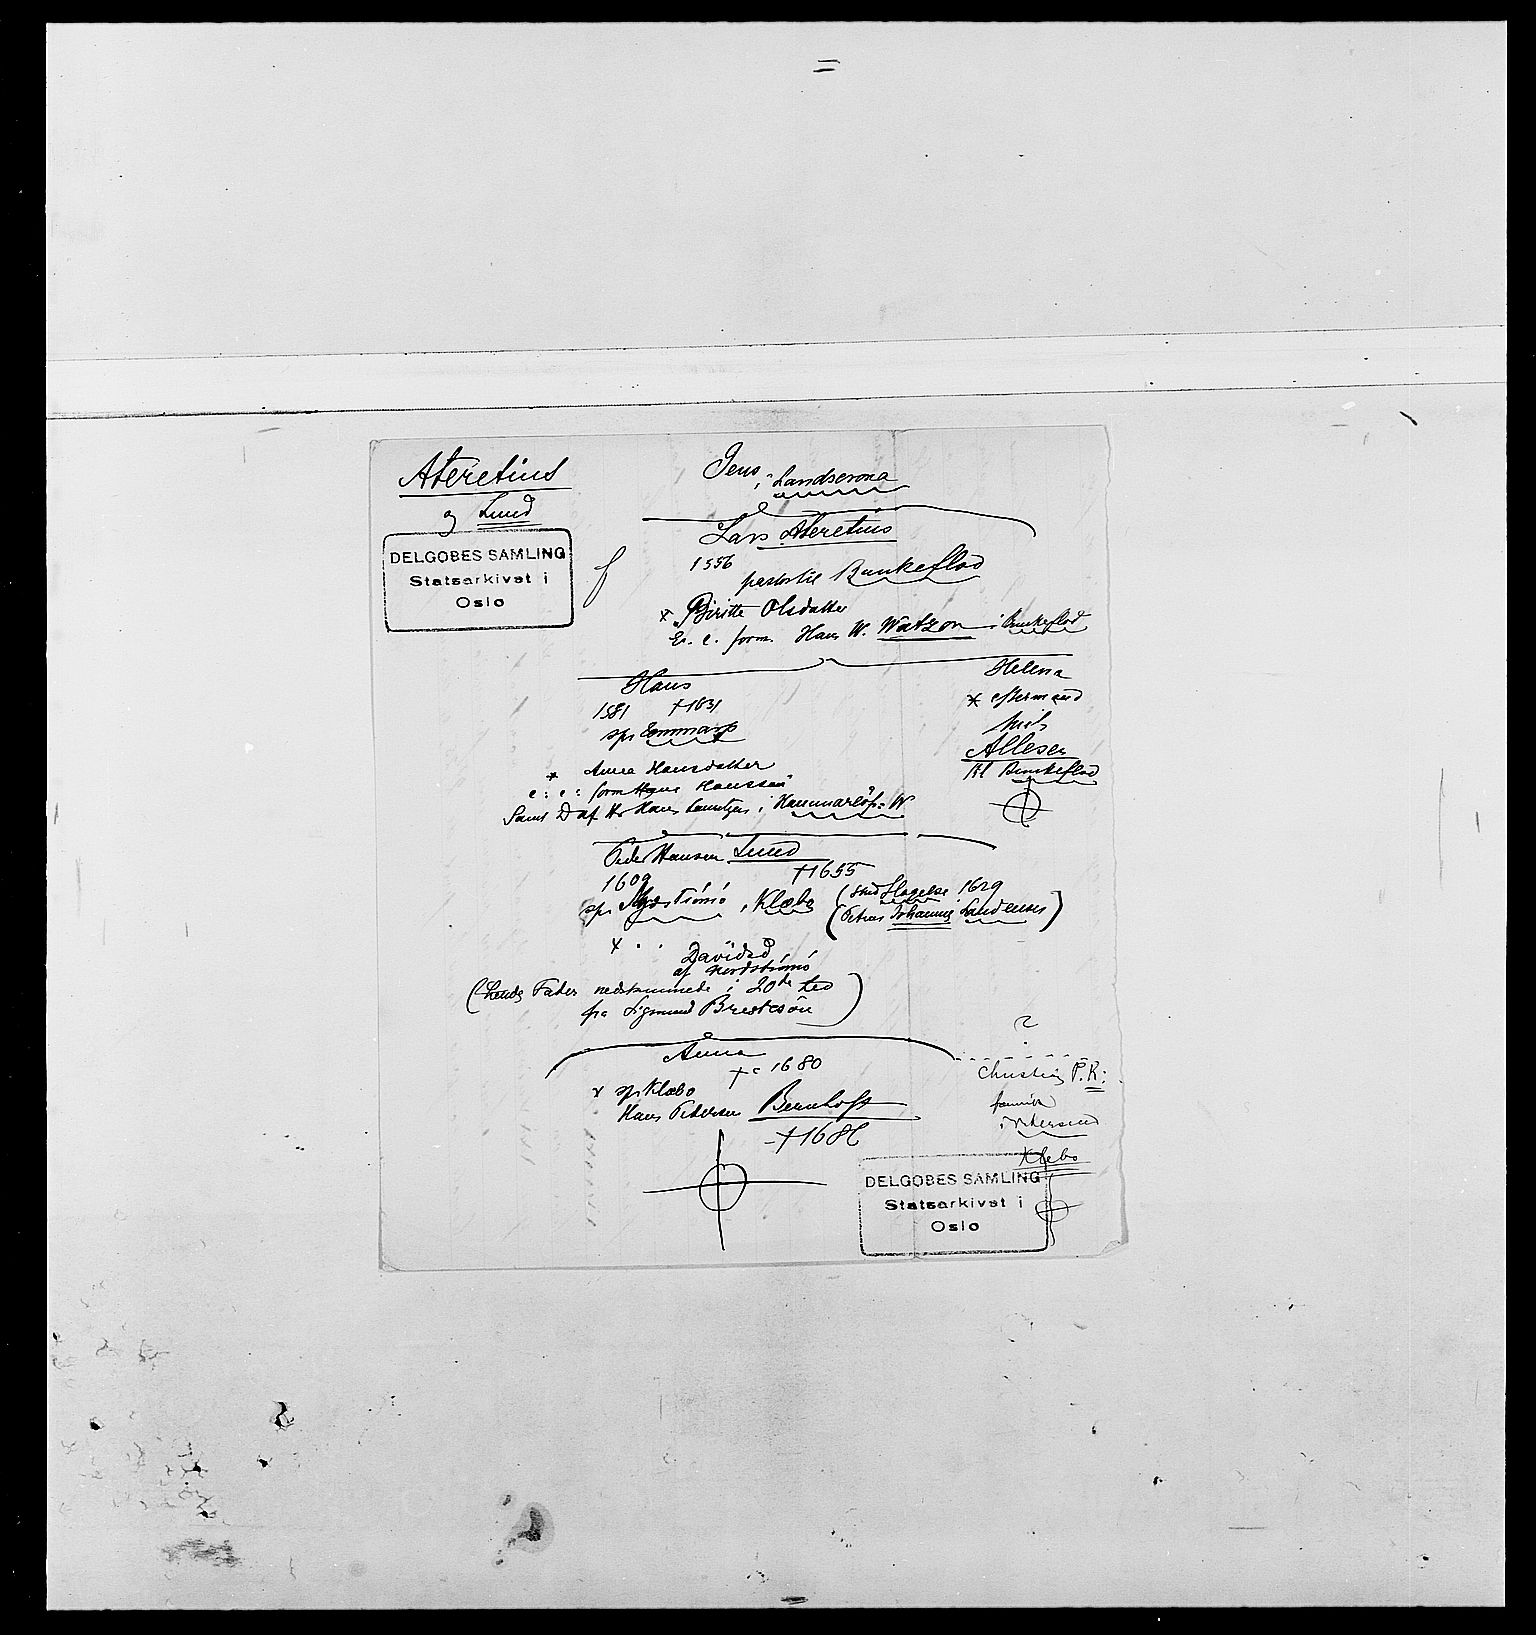 Ateretius
og Lund
DELGOBES SAMLING
Statsarkivet i
Oslo
Jens
i Landscrona
Lars Ateretius
1556
pastor til Bunkeflod
x Biritte Olsdatter
E. e. form. Hans W. Watzon i Bunkeflod
Hans
1581 †1631
spr Emmarp
* Anna Hansdatter
e: e: form Mogns Hanssøn
Samt D af Hr Hans Lauritzen i Hammarlöf. W
Helena
* eftermand
Niels
Allesen
til Bunkeflod
Peder Hansen Lund
1609 †1655
spr , Klæbo (stud Slagelse 1629
(Petrus Johannis Lundensis)
x . . Davidsd
af
(hends Fader nedstammede i 20de Led
fra Sigmund Brestesön)
Anna
†c 1680
x spr Klæbo
Hans Pedersen Bernhoft
- †1686
?
Christen P. R:
Klebo
DELGOBES SAMLING
Statsarkivet i
Oslo